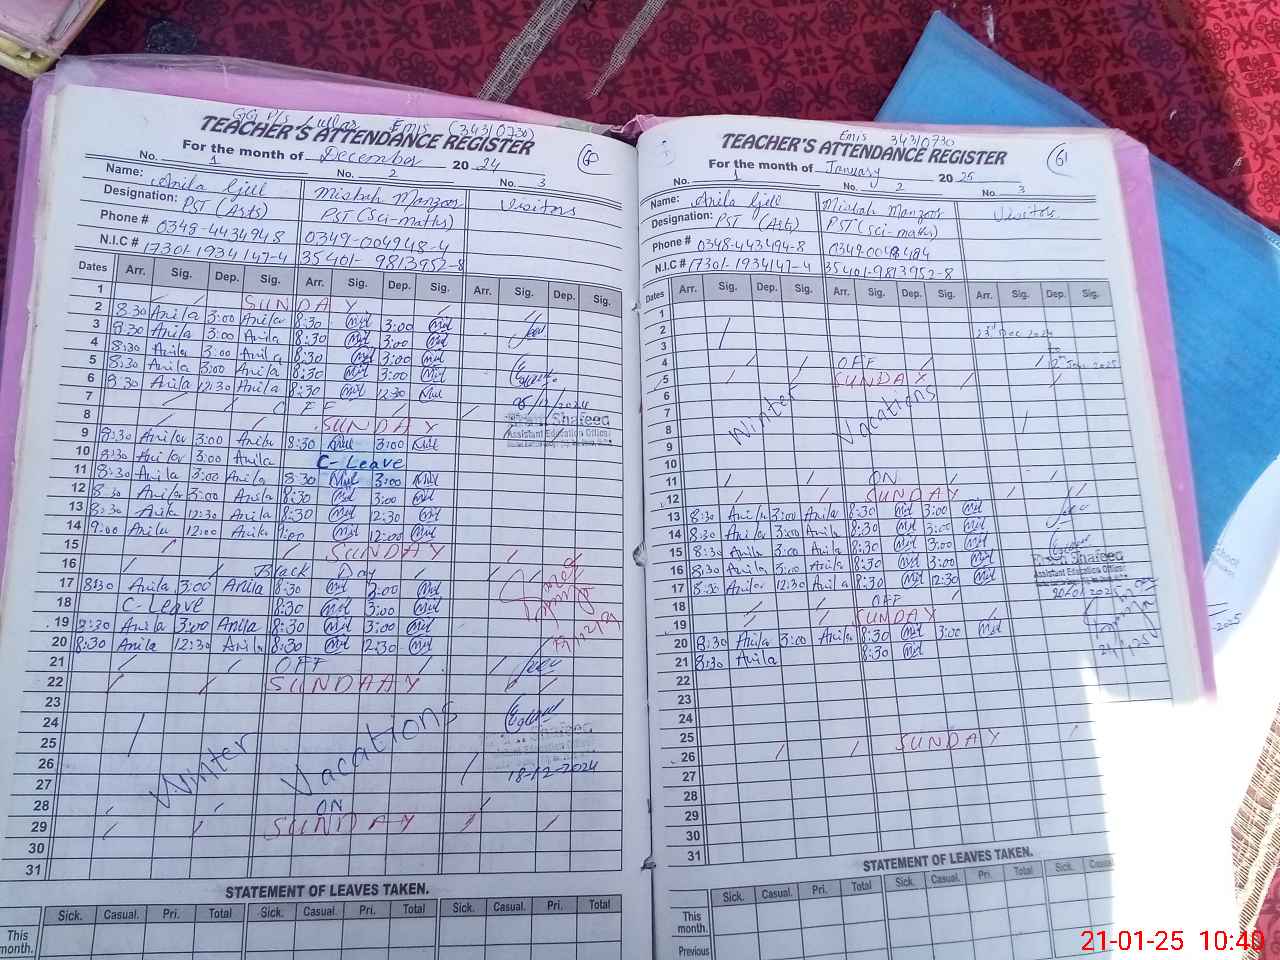 GG P/S Lullar Emis (34310730)
TEACHER'S ATTENDANCE REGISTER
For the month of December 20 24
No. 1 No. 2 No. 3
Name: Anila Gill Misbah Manzoor Visitors
Designation: PST (Arts) PST (Sci-maths)
Phone # 0348-4434948 0349-004948-4
N.I.C # 17301-1934147-4 35401-9813952-8
Dates Arr. Sig. Dep. Sig. Arr. Sig. Dep. Sig. Arr. Sig. Dep. Sig.
1 SUNDAY
2 8:30 Anila 3:00 Anila 8:30 3:00
3 8:30 Anila 3:00 Anila 8:30 3:00
4 8:30 Anila 3:00 Anila 8:30 3:00
5 8:30 Anila 3:00 Anila 8:30 3:00
6 8:30 Anila 12:30 Anila 8:30 12:30
7 OFF
8 SUNDAY Shafeeq
Assistant Education Officer
9 8:30 Anila 3:00 Anila 8:30 3:00
10 8:30 Anila 3:00 Anila C-Leave
11 8:30 Anila 3:00 Anila 8:30 3:00
12 8:30 Anila 3:00 Anila 8:30 3:00
13 8:30 Anila 12:30 Anila 8:30 12:30
14 9:00 Anila 12:00 Anila 9:00 12:00
15 SUNDAY
16 Black Day
17 8:30 Anila 3:00 Anila 8:30 3:00
18 C-Leave 8:30 3:00
19 8:30 Anila 3:00 Anila 8:30 3:00
20 8:30 Anila 12:30 Anila 8:30 12:30
21 OFF
22 SUNDAAY
23
24
25 Winter Vacations
26 18-12-2024
27
28 ON
29 SUNDAY
30
31
STATEMENT OF LEAVES TAKEN.
Sick. Casual. Pri. Total Sick. Casual. Pri. Total Sick. Casual. Pri. Total
This month.
Emis 34310730
TEACHER'S ATTENDANCE REGISTER 61
For the month of January 20 25
No. 1 No. 2 No. 3
Name: Anila Gill Misbah Manzoor Visitors
Designation: PST (Arts) PST (Sci-maths)
Phone # 0348-443494-8 03490048484
N.I.C # 17301-1934147-4 35401-9813952-8
Dates Arr. Sig. Dep. Sig. Arr. Sig. Dep. Sig. Arr. Sig. Dep. Sig.
1
2 23rd Dec 2024
3 to
4 OFF 12th Jan 2025
5 SUNDAY
6
7 Winter Vacations
8
9
10
11 ON
12 SUNDAY
13 8:30 Anila 3:00 Anila 8:30 3:00
14 8:30 Anila 3:00 Anila 8:30 3:00
15 8:30 Anila 3:00 Anila 8:30 3:00
16 8:30 Anila 3:00 Anila 8:30 3:00 Shafeeq
Assistant Education Officer
17 8:30 Anila 12:30 Anila 8:30 12:30 20/01/2025
18 OFF
19 SUNDAY
20 8:30 Anila 3:00 Anila 8:30 3:00
21 8:30 Anila 8:30
22
23
24
25
26 SUNDAY
27
28
29
30
31
STATEMENT OF LEAVES TAKEN.
Sick. Casual. Pri. Total Sick. Casual. Pri. Total Sick.
This month.
Previous
21-01-25 10:40